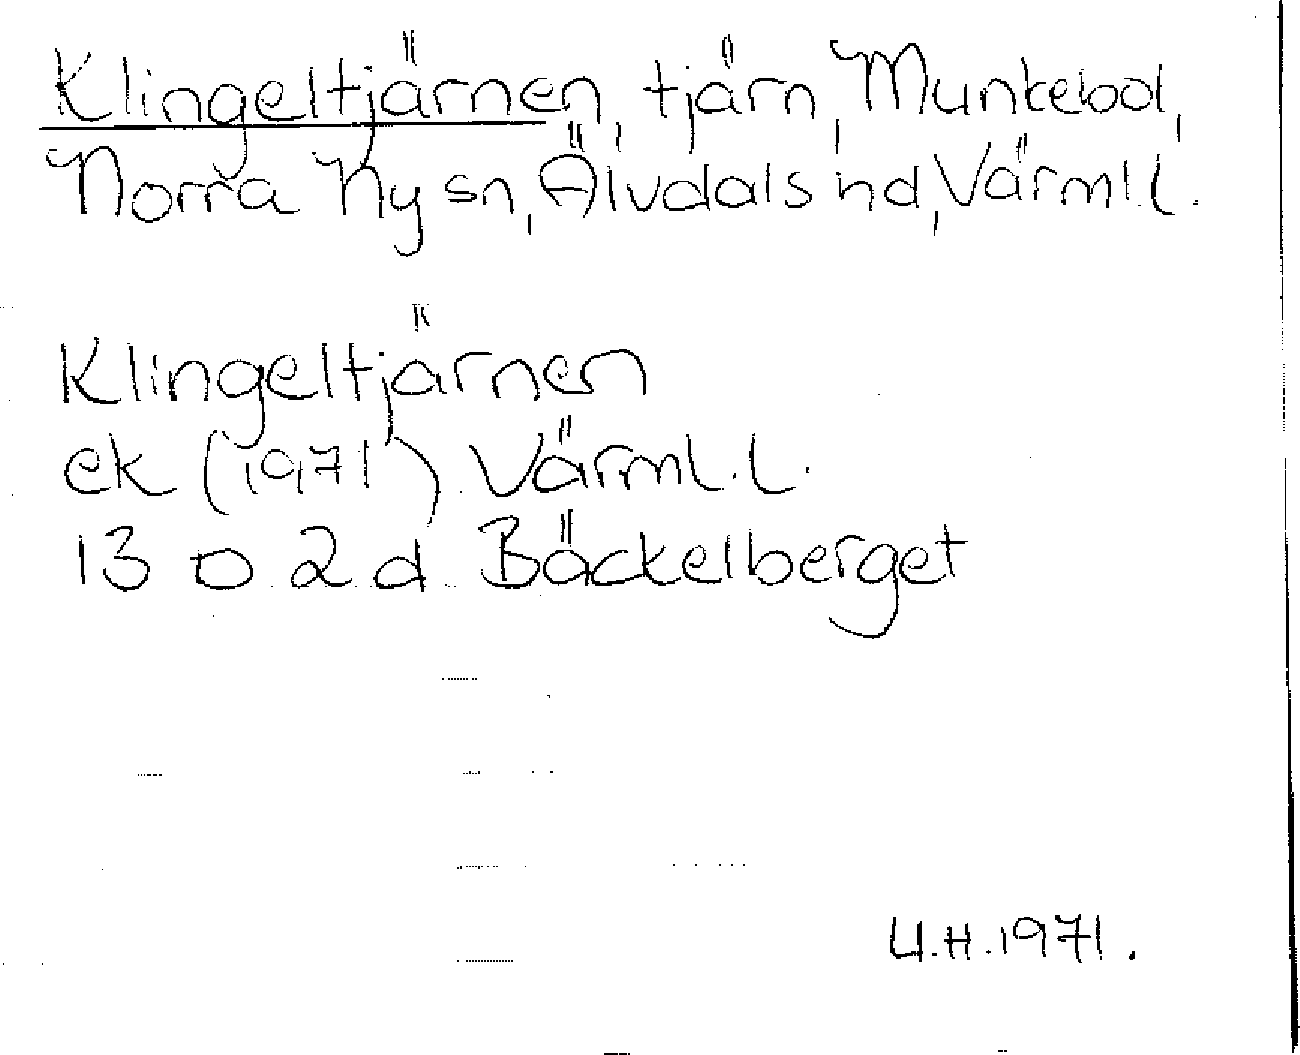 Klingeltjärnen, tjärn, Munkebol,
Norra Ny sn, Älvdals hd, Värml. l.
Klingeltjärnen
ek (1971) Värml. l.
13 D 2 d Bäckelberget
U.H. 1971.